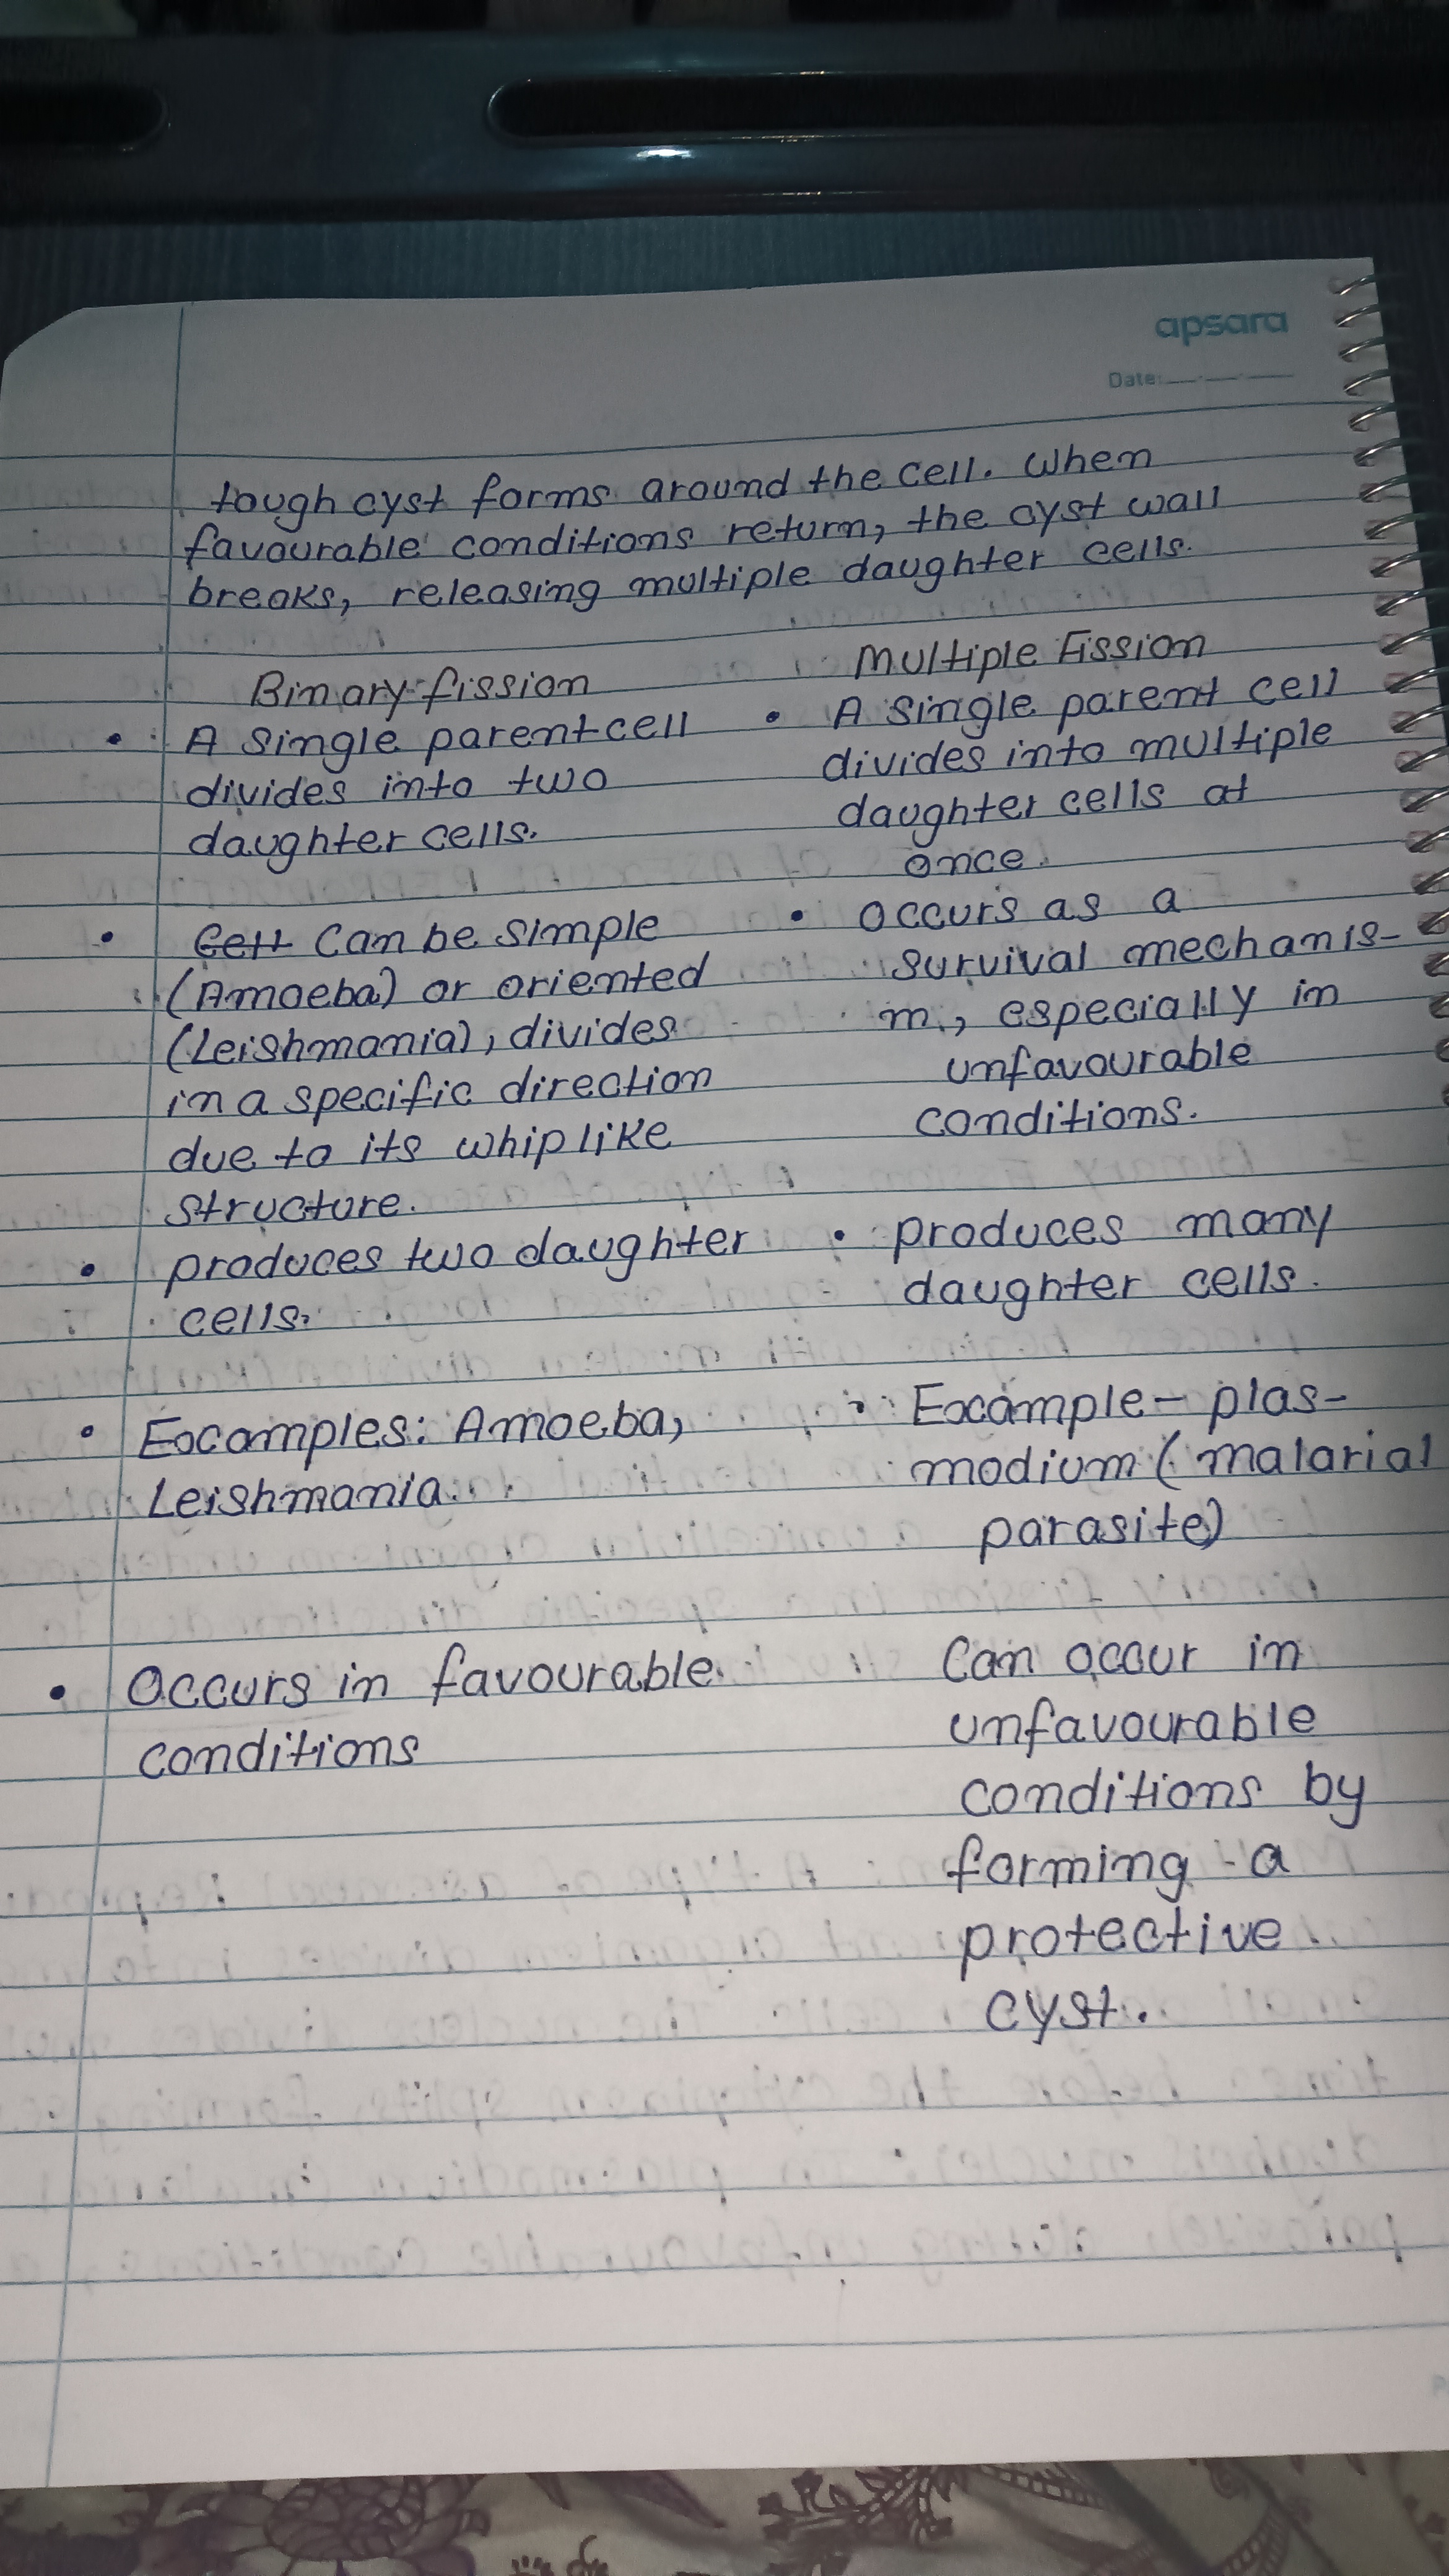 apsara
Date:
tough cyst forms around the cell. When
favourable conditions return, the cyst wall
breaks, releasing multiple daughter cells.
Binary fission
• A single parent cell
divides into two
daughter cells.
• Cell Can be simple
(Amoeba) or oriented
(Leishmania), divides
in a specific direction
due to its whip like
structure.
• produces two daughter
cells.
• Examples: Amoeba,
Leishmania.
• Occurs in favourable
conditions
Multiple Fission
• A single parent cell
divides into multiple
daughter cells at
once.
• occurs as a
survival mechanis-
m, especially in
unfavourable
conditions.
• produces many
daughter cells.
• Example - plas-
modium (malarial
parasite)
Can occur in
unfavourable
conditions by
forming a
protective
cyst.